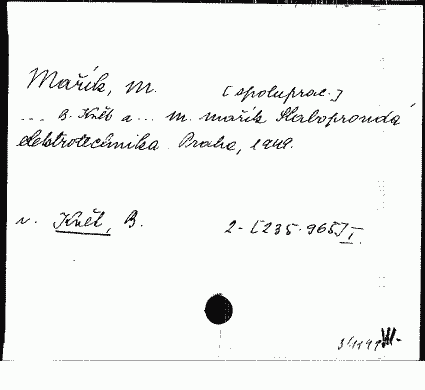 Mařík, M. [spoluprac.]
... B. Knět a... M. Mařík Slaboproudá
elektrotechnika Praha, 1949.
v. Knět, B. 2-[235.965] I.